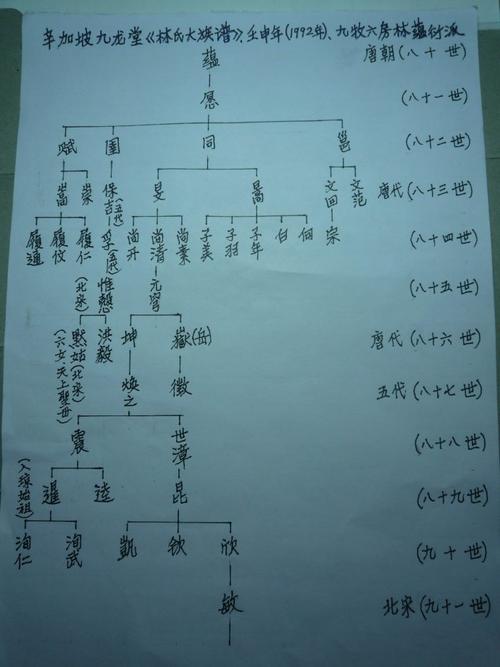 辛加坡九龙堂《林氏大族谱》、壬申年(1992年)、九牧六房林蕴衍派
蕴 唐朝(八十世)
愿 (八十一世)
赋 圉 同 邕 (八十二世)
嵩 崇 保吉(五代) 旻 暠 文回 文范 唐代(八十三世)
履通 履仪 履仁 孚(五代) 尚升 尚清 尚素 子美 子羽 子年 白 佃 宗 (八十四世)
(北宋) 惟慤 元宰 (八十五世)
(六女、天上聖母) 默姑(北宋) 洪毅 坤 嶽(岳) 唐代(八十六世)
焕之 徵 五代(八十七世)
震 世漳 (八十八世)
(入琼始祖) 暹 逵 昆 (八十九世)
洵仁 洵武 凱 钦 欣 (九十世)
敏 北宋(九十一世)